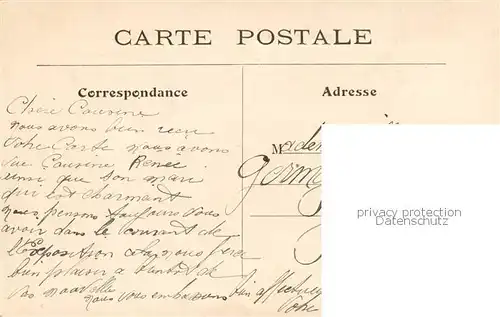 CARTE POSTALE
Correspondance
Adresse
Chère Cousine
nous avons bien recu
votre Carte nous avons
vu Cousine Renée
ainsi que son mari
qui est charmant
nous pensons toujours vous
avoir dans le courant de
l'Exposition cela nous fera
bien plaisir a
de
vos nouvelles
nous vous embrassons bien affectueu
Votre
Mademoi
Germ
privacy protection
Datenschutz